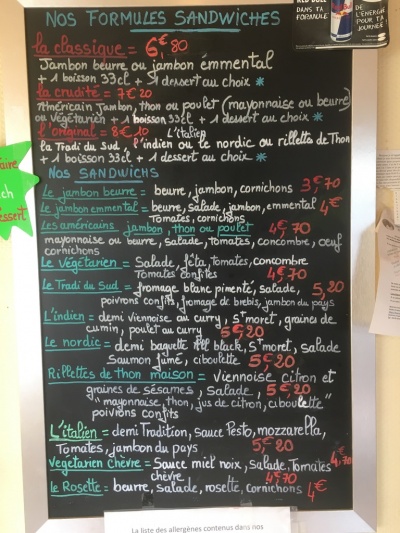 NOS FORMULES SANDWICHES
RED BULL
DANS TA
FORMULE
DE L'ÉNERGIE
POUR TA
JOURNÉE
la classique = 6€,80
Jambon beurre ou jambon emmental
+ 1 boisson 33cl + 1 dessert au choix *
la crudité = 7€20
Américain Jambon, thon ou poulet (mayonnaise ou beurre)
ou Végétarien + 1 boisson 33cl + 1 dessert au choix *
l'original = 8€10 L'italien
la Tradi du Sud, l'indien ou le nordic ou rillettes de Thon
+ 1 boisson 33cl + 1 dessert au choix *
NOS SANDWICHS
Le jambon beurre = beurre, jambon, cornichons 3€70
Le jambon emmental = beurre, salade, jambon, emmental 4€
Tomates, cornichons
Les américains jambon, thon ou poulet 4€70
mayonnaise ou beurre, salade, tomates, concombre, oeuf
cornichons
Le Végétarien = Salade, fêta, tomates, concombre
Tomates confites 4€70
Le Tradi du Sud = fromage blanc pimenté, salade, 5,20
poivrons confits, fromage de brebis, jambon du pays
L'indien = demi viennoise au curry, St moret, graines de
cumin, poulet au curry 5€20
Le nordic = demi baguette all black, St moret, salade
Saumon fumé, ciboulette 5€20
Rillettes de thon maison = Viennoise citron et
graines de sésames, salade, 5€20
"mayonnaise, thon, jus de citron, ciboulette"
poivrons confits
L'italien = demi Tradition, sauce Pesto, mozzarella,
Tomates, jambon du pays 5€20
Vegetarien Chèvre = Sauce miel noix, salade, Tomates 4€70
chèvre 4€70
le Rosette = beurre, salade, rosette, cornichons 4€
La liste des allergènes contenus dans nos